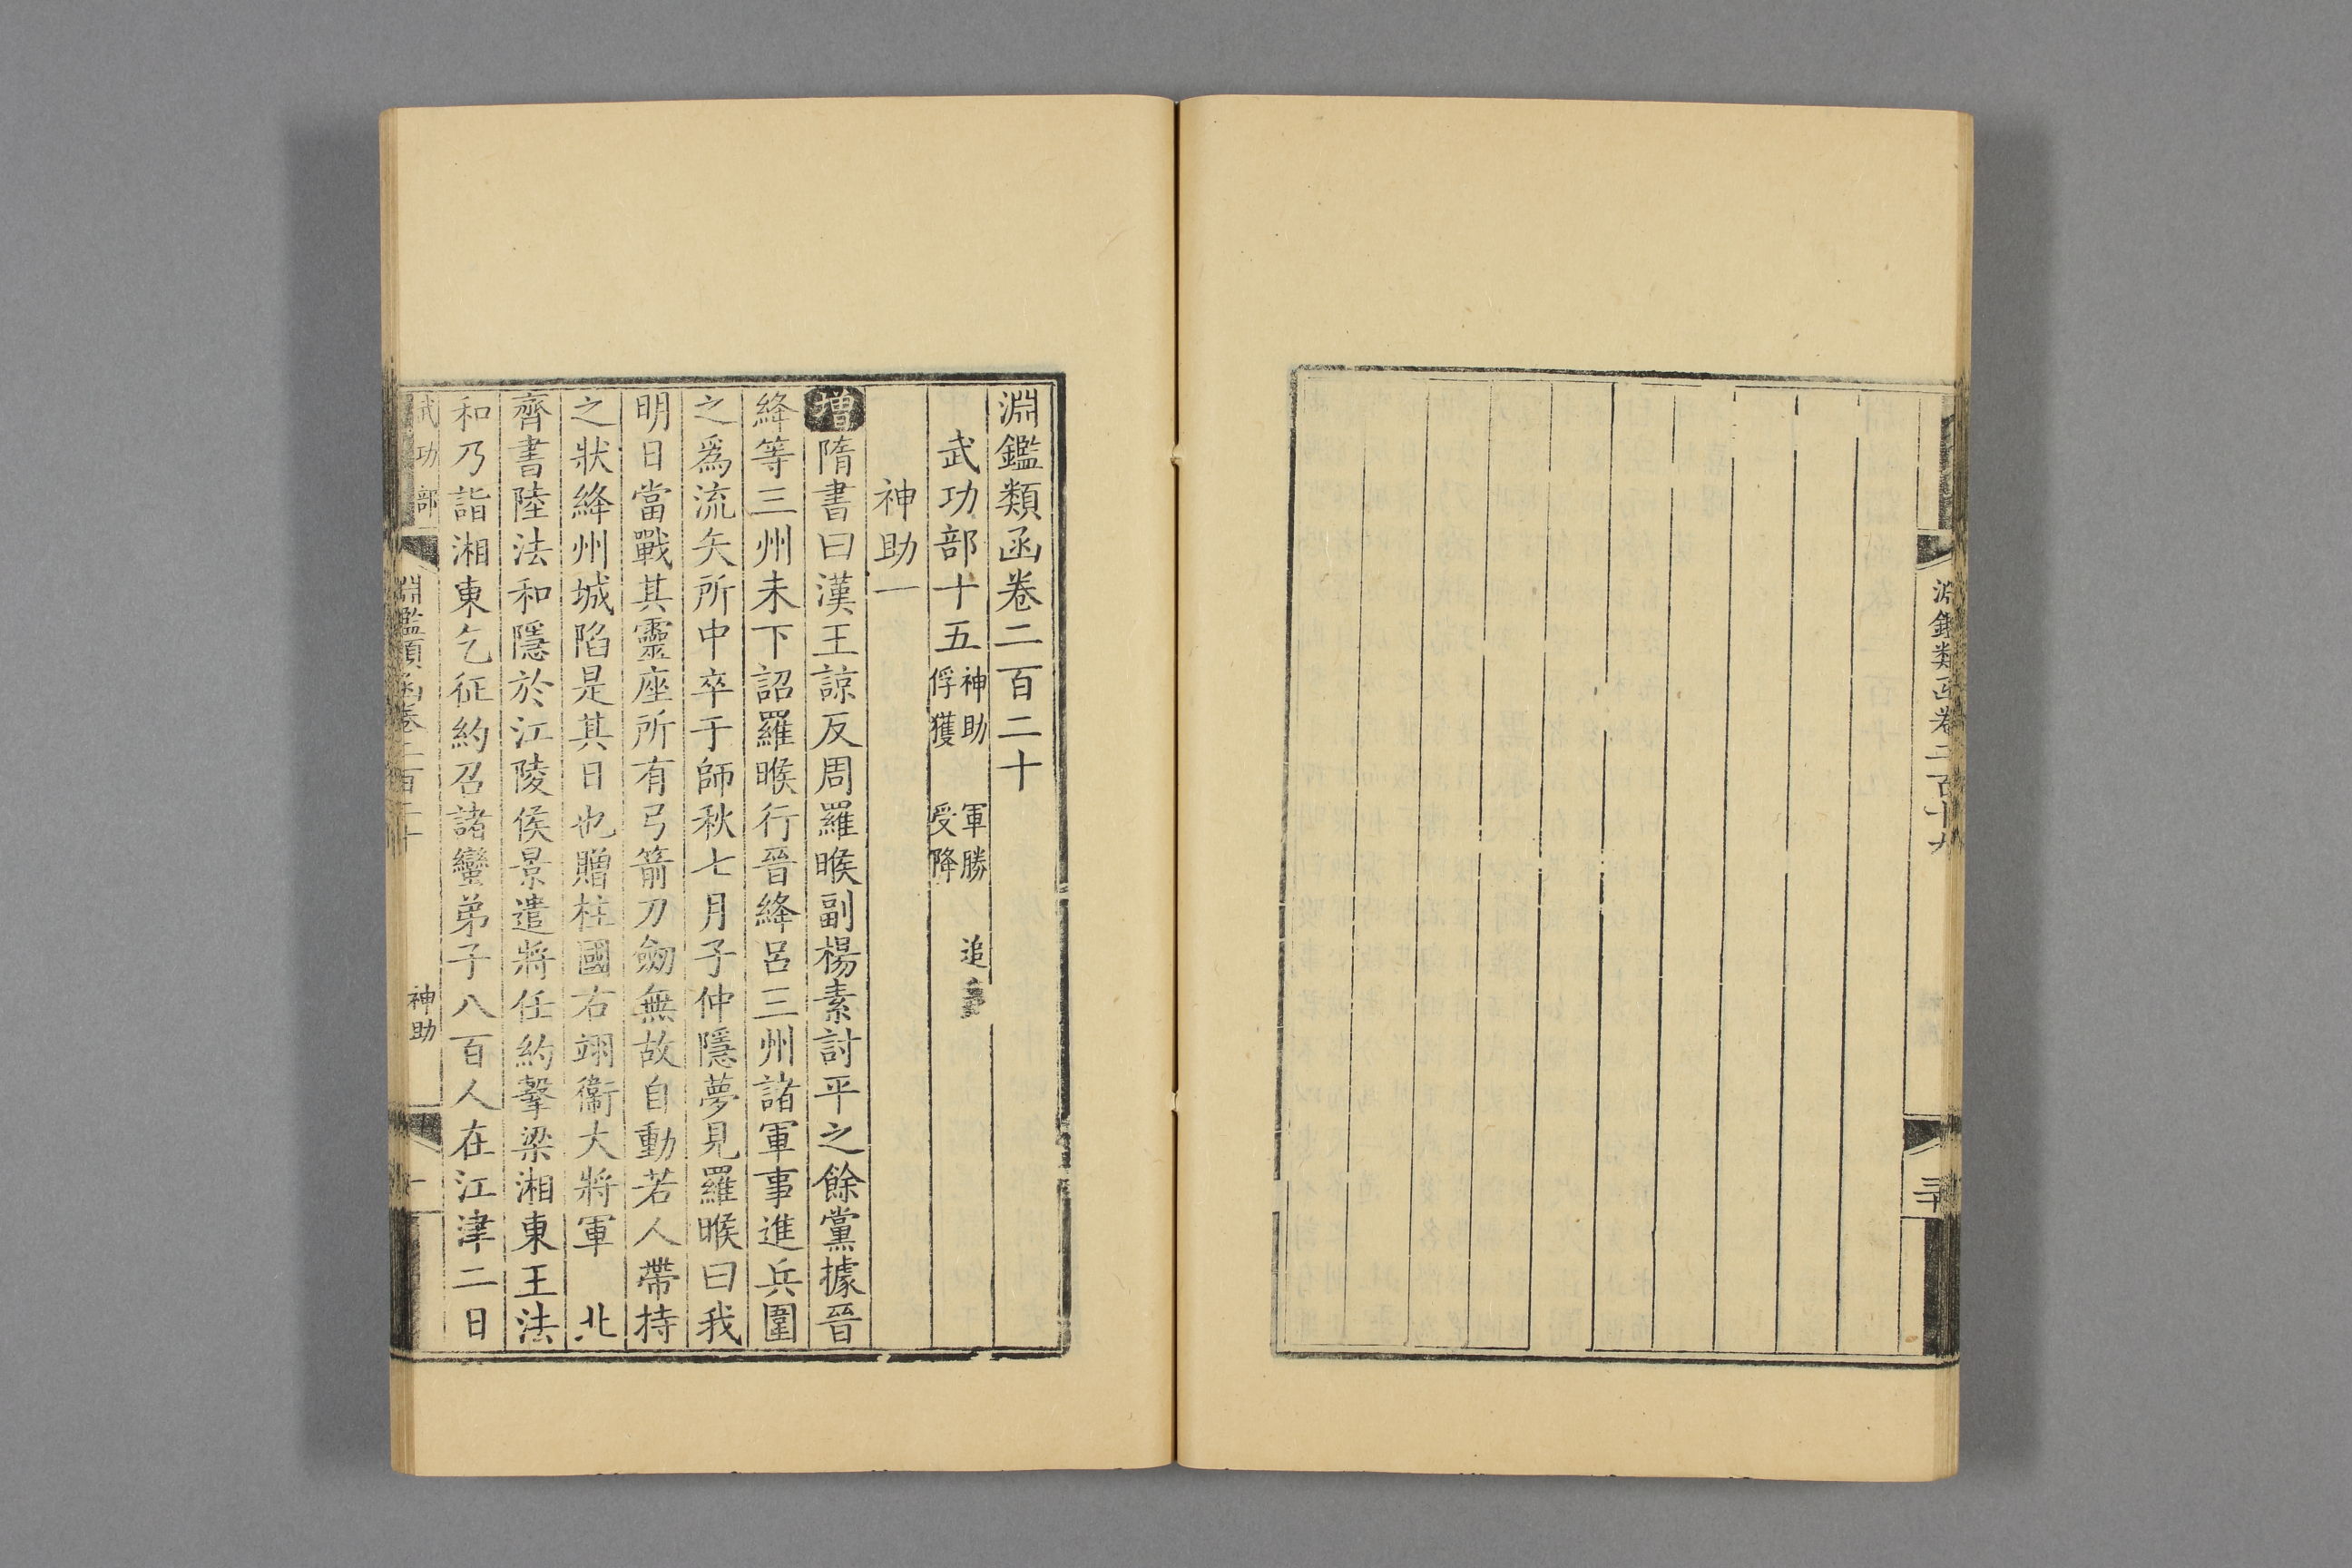 淵鑑類函卷二百十九
淵鑑類函卷二百二十
武功部十五 神助 俘獲 軍勝 受降 追
神助一
增隋書曰漢王諒反周羅㬋副楊素討平之餘黨據晉
絳等三州未下詔羅㬋行晉絳呂三州諸軍事進兵圍
之爲流矢所中卒于師秋七月子仲隱夢見羅㬋曰我
明日當戰其靈座所有弓箭刀劒無故自動若人帶持
之狀絳州城陷是其日也贈柱國右翊衞大將軍 北
齊書陸法和隱於江陵侯景遣將任約擊梁湘東王法
和乃詣湘東乞征約召諸蠻弟子八百人在江津二日
武功部 淵鑑類函卷二百二十 神助 一